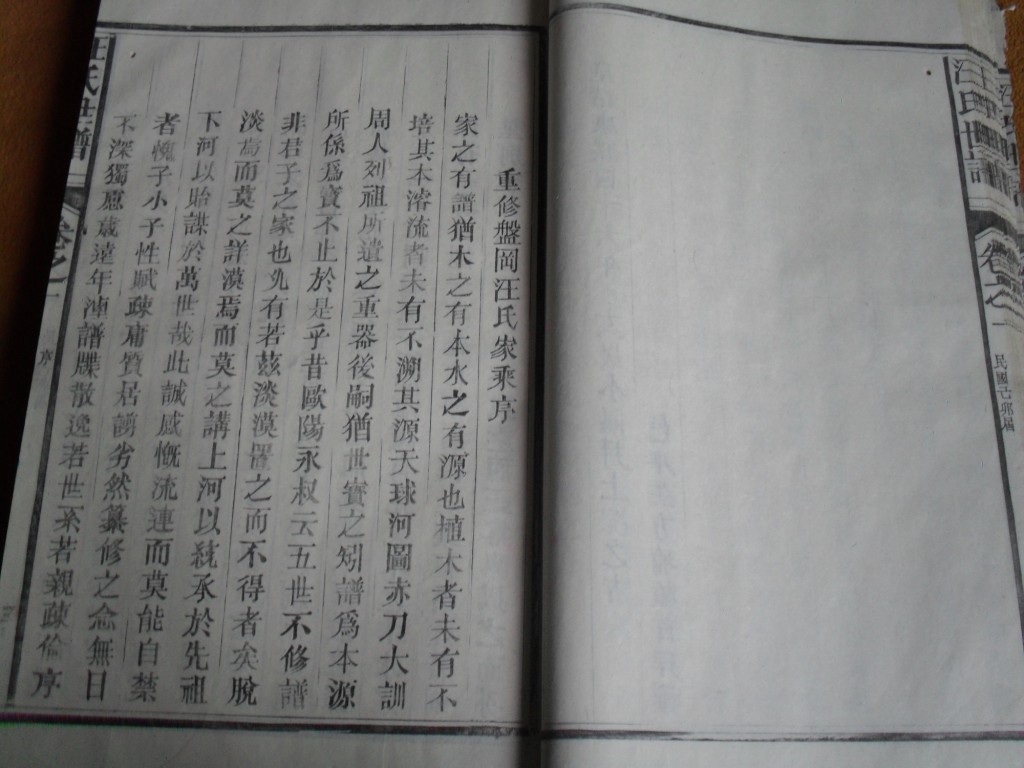 汪氏世譜
卷之一
民國己卯編
重修盤岡汪氏家乘序
家之有譜猶木之有本水之有源也植木者未有不
培其本濬流者未有不溯其源天球河圖赤刀大訓
周人列祖所遺之重器後嗣猶世寶之矧譜爲本源
所係爲寶不止於是乎昔歐陽永叔云五世不修譜
非君子之家也先有若茲淡漠置之而不得者矣脫
淡焉而莫之詳漠焉而莫之講上河以統承於先祖
下河以貽謀於萬世哉此誠感慨流連而莫能自禁
者愧子小子性賦疎庸質居譾劣然纂修之念無日
不深獨慮歲遠年湮譜牒散逸若世系若親疎倫序
汪氏世譜
卷之一
序